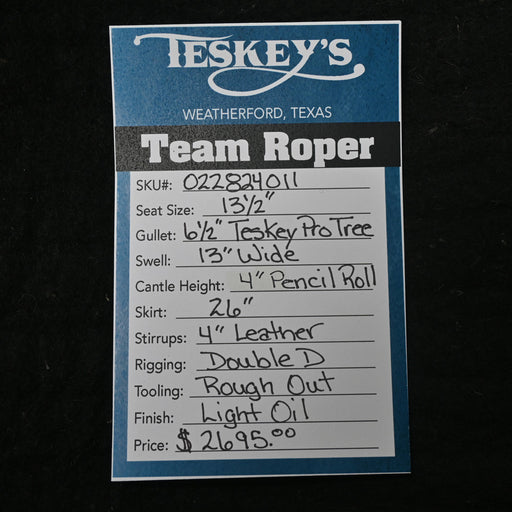 TESKEY'S
WEATHERFORD, TEXAS
Team Roper
SKU#: 022824011
Seat Size: 13½"
Gullet: 6½" Teskey Pro Tree
Swell: 13" Wide
Cantle Height: 4" Pencil Roll
Skirt: 26"
Stirrups: 4" Leather
Rigging: Double D
Tooling: Rough Out
Finish: Light Oil
Price: $2695.00